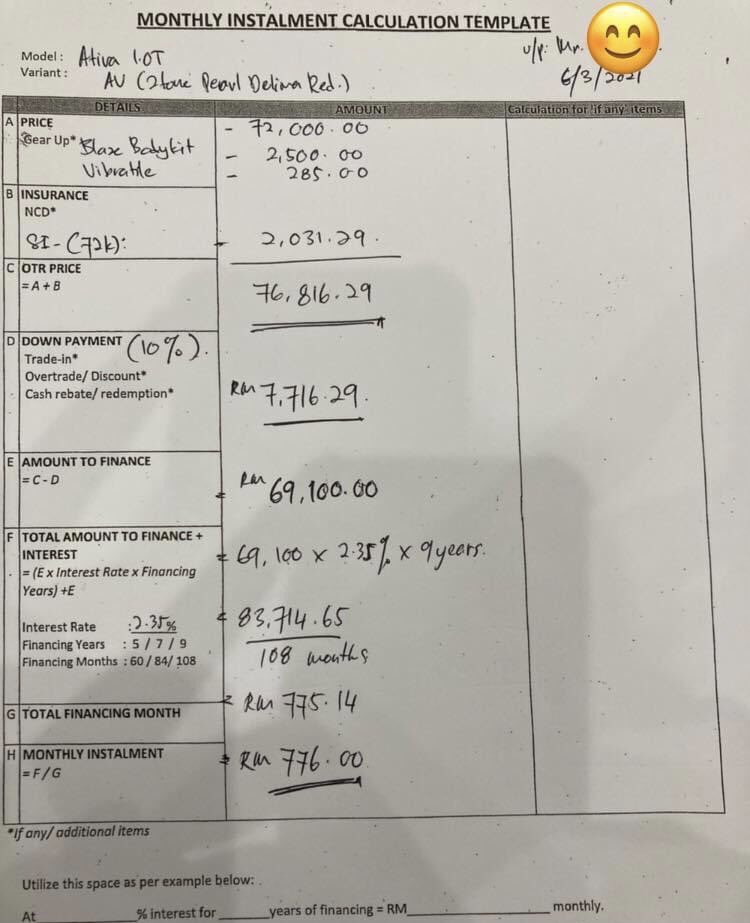 MONTHLY INSTALMENT CALCULATION TEMPLATE
u/p: Mr.
6/3/2021
Model : Ativa 1.0T
Variant : AV (2tone Pearl Delima Red.)
DETAILS AMOUNT Calculation for 'if any' items
A PRICE - 72,000.00
Gear Up* Blaze Bodykit - 2,500.00
Vibrable - 285.00
B INSURANCE
NCD*
SI - (72k): - 2,031.29.
C OTR PRICE
= A + B 76,816.29
D DOWN PAYMENT (10%).
Trade-in*
Overtrade/ Discount*
Cash rebate/ redemption* RM 7,716.29.
E AMOUNT TO FINANCE
= C - D = RM 69,100.00
F TOTAL AMOUNT TO FINANCE +
INTEREST = 69,100 x 2.35% x 9 years.
= (E x Interest Rate x Financing
Years) +E
Interest Rate : 2.35% = 83,714.65
Financing Years : 5 / 7 / 9
Financing Months : 60 / 84/ 108 108 months
= RM 775.14
G TOTAL FINANCING MONTH
H MONTHLY INSTALMENT = RM 776.00
= F / G
*If any/ additional items
Utilize this space as per example below:
At ____________ % interest for ______ years of financing = RM ________________ monthly.